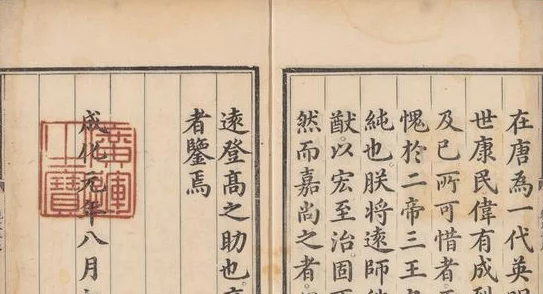 在唐為一代英明
世康民偉有成
及已所可惜者
愧於二帝三王
純也朕將遠師
猷以宏至治固
然而嘉尚之者
遠登高之助也
者鑒焉
成化元年八月
廣運之寶